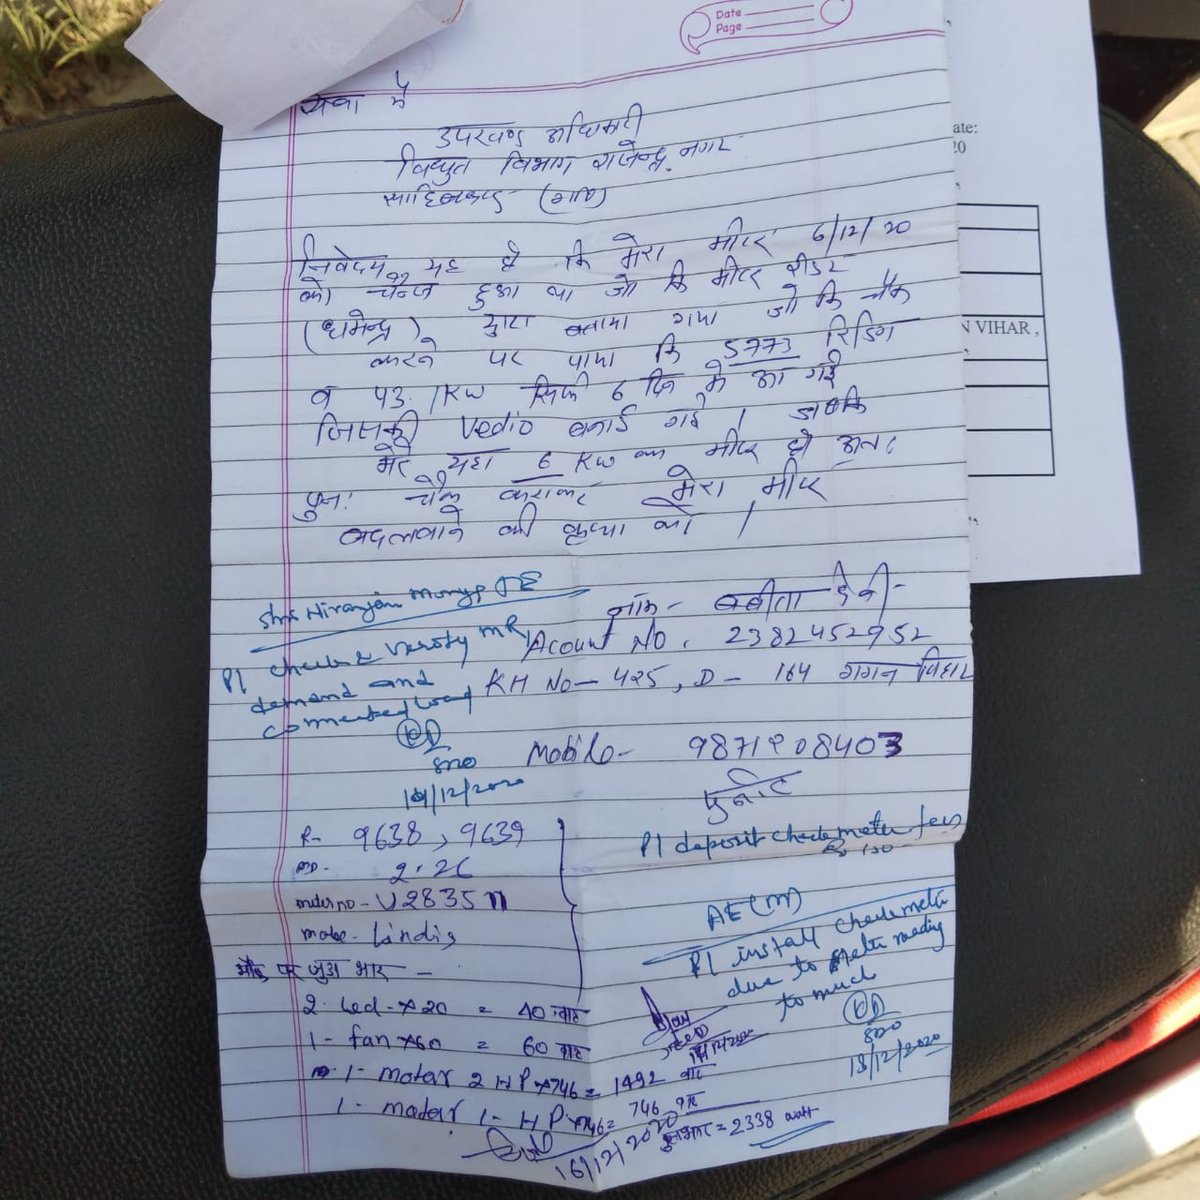 Date
Page
सेवा में
उपखण्ड अधिकारी
विधुत विभाग राजेन्द्र नगर
साहिबाबाद (गा०बाद)
निवेदन यह है कि मेरा मीटर 6/12/20
को चेन्ज हुआ था जो कि मीटर रीडर
(धर्मेन्द्र) द्वारा बताया गया जो कि चैक
करने पर पाया कि 5773 रिडिंग
व 43.1KW सिर्फ 6 दिन में आ गई
जिसकी Vedio बनाई गई। जबकि
मेरे यहा 6 KW का मीटर है अतः
पुनः चैक कराकर मेरा मीटर
बदलवाने की कृपा करे।
नाम - बबीता देवी
Acount NO. 2382452952
KH No - 425, D - 164 गगन विहार
Mobile - 9871908403
पुनीत
Shri Niranjan Morya JE
Pl check & verify MR,
demand and
connected load
SDO
14/12/2020
Pl deposit check meter fees
AE (M)
Pl install check meter
due to meter reading
to much
SDO
18/12/2020
R- 9638, 9639
MD- 2.26
meter no - U2835
make- Landis
मौके पर जुडा भार -
2. Led × 20 = 40 वाट
1 - fan × 60 = 60 वाट
1 - motar 2 HP × 746 = 1492 वाट
1 - motar 1 - HP × 746 = 746 वाट
कुलभार = 2338 watt
16/12/2020
ate:
20
N VIHAR,